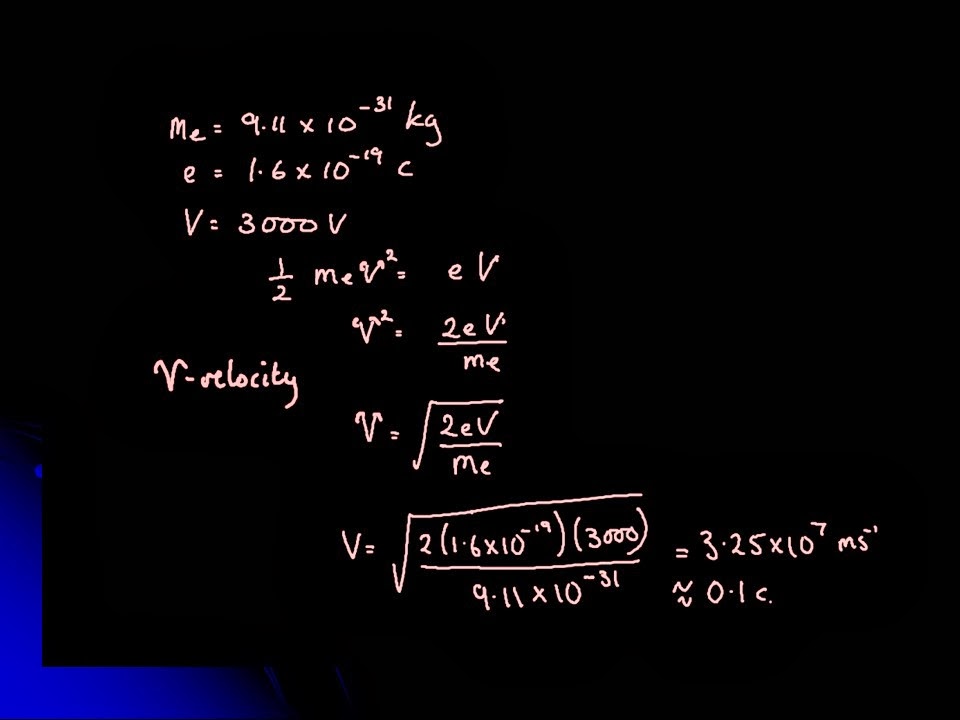 me = 9.11 x 10^-31 kg
e = 1.6 x 10^-19 C
V = 3000 V
1/2 me v^2 = e V
v^2 = 2eV/me
v-velocity
v = √(2eV/me)
V = √(2(1.6x10^-19)(3000)/9.11 x 10^-31) = 3.25x10^7 ms^-1
≈ 0.1 c.